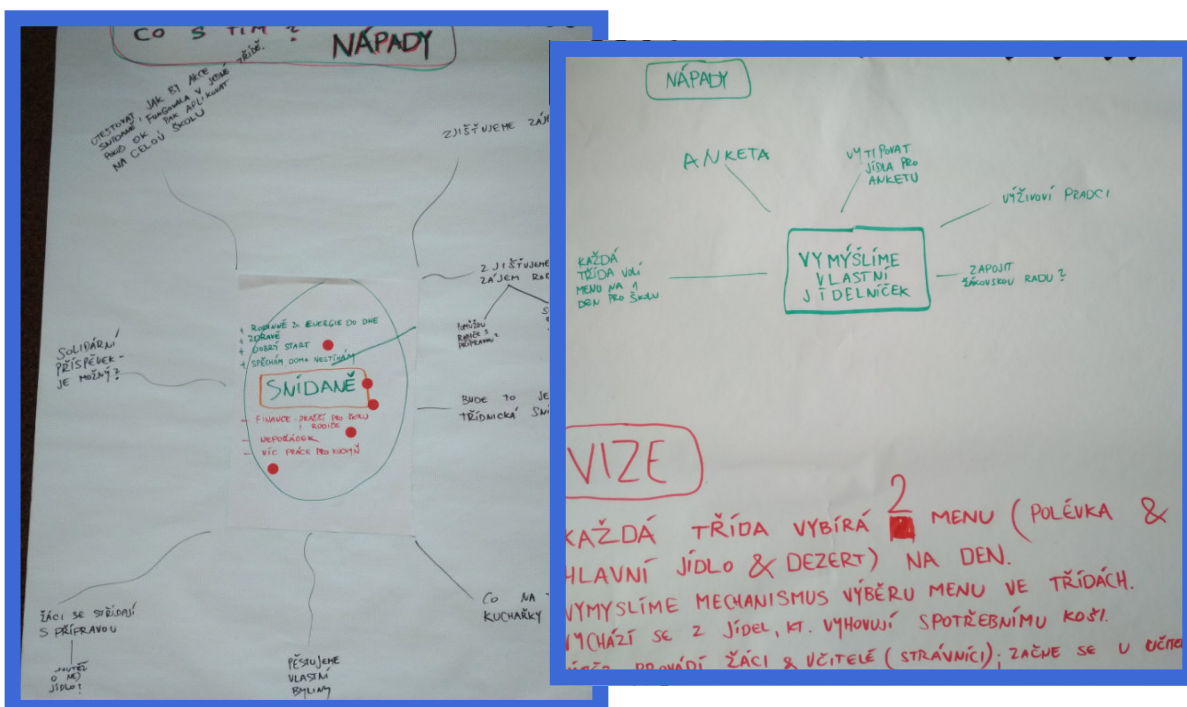 CO S TÍM?
NÁPADY
OTESTOVAT JAK BY AKCE
SNÍDANĚ FUNGOVALA V JEDNÉ TŘÍDĚ.
POKUD OK PAK APLIKOVAT
NA CELOU ŠKOLU
ZJIŠŤUJEME
ZJIŠŤUJEME
ZÁJEM
RODIČE S
PŘÍPRAVOU?
SOLIDÁRNÍ
PŘÍSPĚVEK -
JE MOŽNÝ?
+ ENERGIE DO DNE
+ ZDRAVĚ
+ DOBRÝ START
+ SPĚCHÁM DOMA NESTÍHÁM
SNÍDANĚ
- FINANCE - DRAŽŠÍ PRO ŠKOLU
I RODIČE
- NEPOŘÁDEK
- VÍC PRÁCE PRO KUCHYŇ
BUDE TO
TŘÍDNICKÁ
CO NA
KUCHAŘKY
ŽÁCI SE STŘÍDAJÍ
S PŘÍPRAVOU
SOUTĚŽ
O NEJ
JÍDLO!
PĚSTUJEME
VLASTNÍ
BYLINY
NÁPADY
ANKETA
VYTIPOVAT
JÍDLA PRO
ANKETU
VÝŽIVOVÍ
KAŽDÁ
TŘÍDA VOLÍ
MENU NA 1
DEN PRO ŠKOLU
VYMÝŠLÍME
VLASTNÍ
JÍDELNÍČEK
ZAPOJIT
ŽÁKOVSKOU RADU?
VIZE
KAŽDÁ TŘÍDA VYBÍRÁ 2 MENU (POLÉVKA &
HLAVNÍ JÍDLO & DEZERT) NA DEN.
VYMYSLÍME MECHANISMUS VÝBĚRU MENU VE TŘÍDÁCH.
VYCHÁZÍ SE Z JÍDEL, KT. VYHOVUJÍ SPOTŘEBNÍMU KOŠI.
PROVÁDÍ ŽÁCI & UČITELÉ (STRÁVNÍCI); ZAČNE SE U